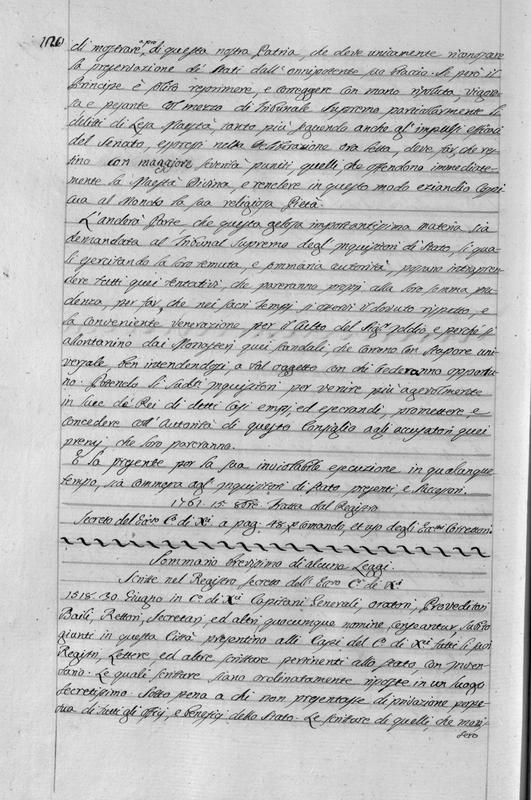 1126
di mostrare a pro di questa nostra Patria, che deve unicamente riconoscere
la preservazione de' Stati dall'onnipotente suo Braccio. Se però il
Principe è solito reprimere, e correggere con mano risoluta, vigoro-
sa e pesante col mezzo di Tribunale Supremo particolarmente li
delitti di Lesa Maestà, tanto più seguendo anche gl'impulsi efficaci
del Senato, espressi nella deliberazione ora letta, deve far che re-
stino con maggiore severità puniti, quelli che offendono immediate-
mente la Maestà Divina, e rendere in questo modo eziandio cospi-
cua al Mondo la sua religiosa Pietà.
L'anderà Parte, che questa gelosa importantissima materia sia
demandata al Tribunal Supremo degl'Inquisitori di Stato, li qua-
li esercitando la loro temuta, e sommaria autorità, possano intrapren-
dere tutti quei tentativi, che pareranno proprj alla loro somma pru-
denza, per far, che nei sacri Tempj si osservi il dovuto rispetto, e
la conveniente venerazione per il Culto del Sig.r Iddio, e perchè si
allontanino dai Monasterj quei scandali, che corrono con stupore uni-
versale ben intendendosi a tal oggetto con chi crederanno opportu-
no. Potendo li sudd.ti Inquisitori per venire più agevolmente
in luce de' Rei di detti Casi empj, ed esecrandi, promettere e
concedere coll'Autorità di questo Consiglio agli accusatori quei
premj che loro pareranno.
E la presente per la sua inviolabile esecuzione in qualunque
tempo, sia commessa agl'Inquisitori di Stato presenti, e successori.
1761. 15. 8bre. Tratta dal Registro
Secreto del Ecc.o C.o di X.ci a pag. 48. Comando, et uso degli Ecc.mi Correttori.
Sommario brevissimo di alcune Leggi.
Scritte nel Registro secreto dell'Ecc.o C.o di X.ci
1518. 30. Giugno in C.o di X.ci Capitani Generali, oratori, Proveditori
Baili, Rettori, Secretarj ed altri quocumque nomine censeantur, subito
giunti in questa Città presentino alli Capi del C.o di X.ci tutti li suoi
Registri, Lettere ed altre scritture pertinenti allo stato con inven-
tario. Le quali scritture siano ordinatamente riposte in un luogo
secretissimo. Sotto pena a chi non presentasse di privazione perpe-
tua di tutti gli Officj, e beneficj dello Stato. Le scritture di quelli, che mori-
sero